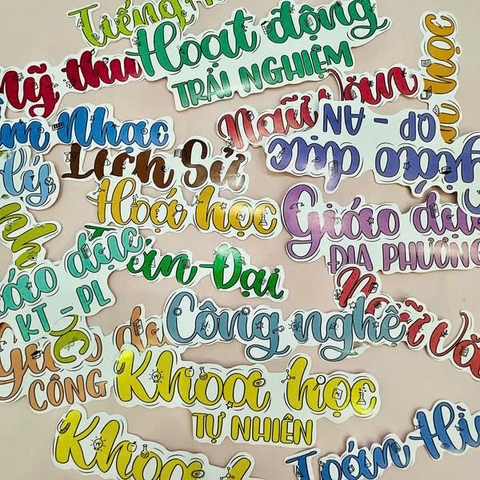 Tiếng
Hoạt động
TRẢI NGHIỆM
Mỹ thu
học
Ngữ văn
Âm Nhạc
QP - AN
Giáo dục
Lý
Lịch Sử
Hoá học
Giáo dục
ĐỊA PHƯƠNG
Giáo dục
KT - PL
án-Đại
Ngữ Vă
Công nghệ
Giáo dục
CÔNG
Khoa học
TỰ NHIÊN
Khoa h
Toán Hì